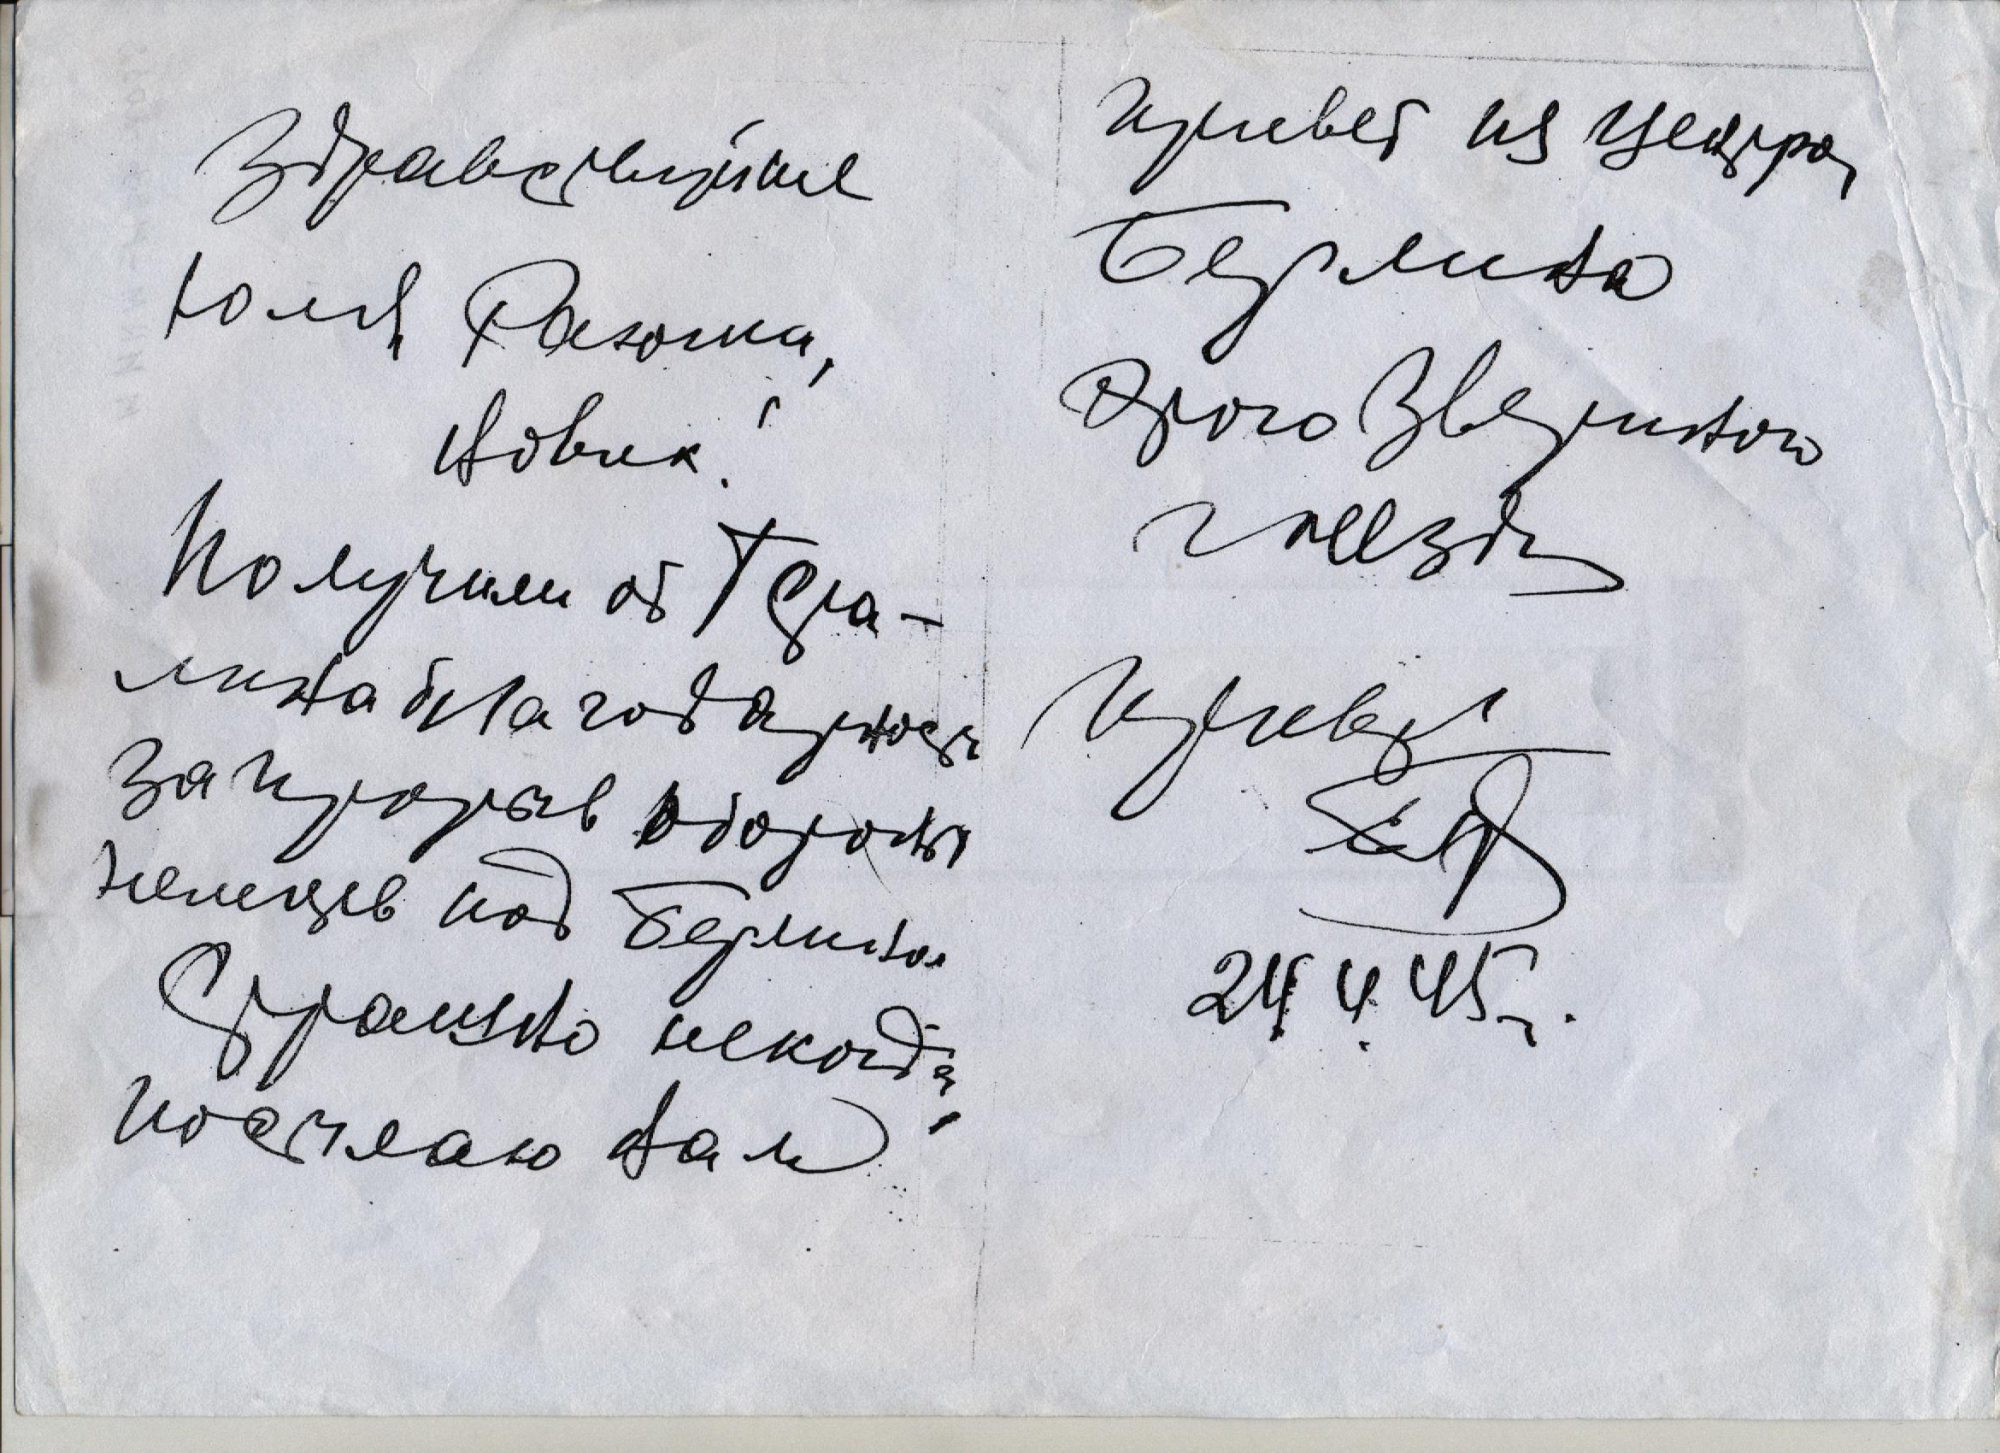 Здравствуйте
Юля,
Новик!
Получили от Ста-
лина благодарность
за прорыв обороны
немцев под Берлином
Страшно некогда,
посылаю вам
привет из центра
Берлина
этого звериного
гнезда
Привет
24.4.45 г.